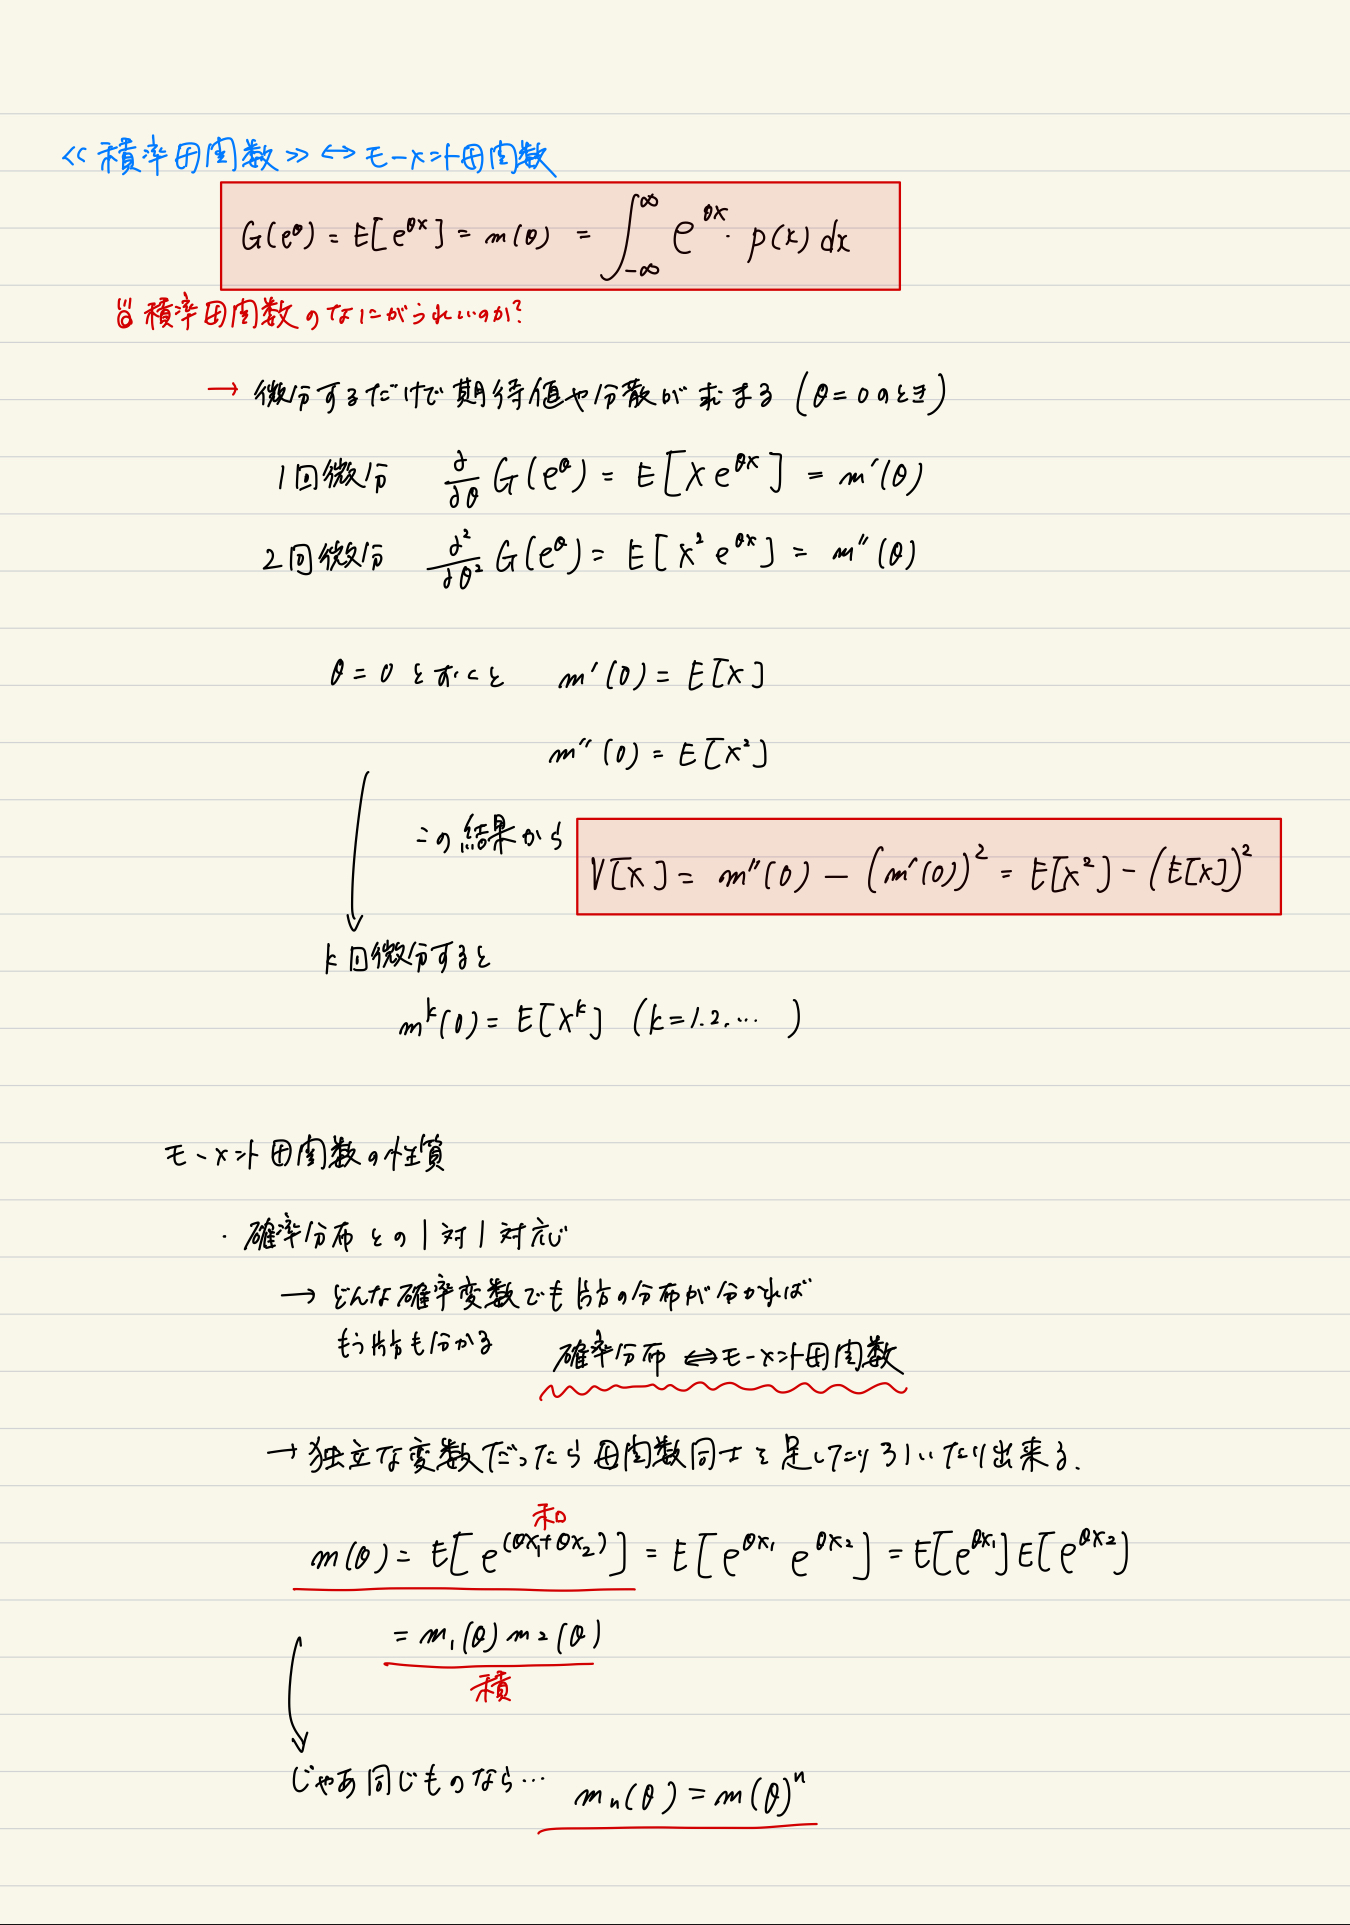 ≪積率母関数≫ ↔ モーメント母関数
G(e^θ) = E[e^{θX}] = m(θ) = ∫_{-∞}^{∞} e^{θX}・p(x) dx
積率母関数のなにがうれしいのか?
→ 微分するだけで期待値や分散が求まる (θ=0のとき)
1回微分 ∂/∂θ G(e^θ) = E[X e^{θX}] = m'(θ)
2回微分 ∂²/∂θ² G(e^θ) = E[X² e^{θX}] = m''(θ)
θ=0 とおくと m'(0) = E[X]
m''(0) = E[X²]
この結果から V[X] = m''(0) − (m'(0))² = E[X²] − (E[X])²
k回微分すると
m^k(0) = E[X^k] (k=1.2.…)
モーメント母関数の性質
・確率分布との1対1対応
→ どんな確率変数でも片方の分布が分かれば
もう片方も分かる 確率分布 ⇔ モーメント母関数
→ 独立な変数だったら母関数同士を足したり引いたり出来る.
和
m(θ) = E[e^{(θX₁+θX₂)}] = E[e^{θX₁} e^{θX₂}] = E[e^{θX₁}]E[e^{θX₂}]
= m₁(θ) m₂(θ)
積
じゃあ同じものなら… mₙ(θ) = m(θ)^n